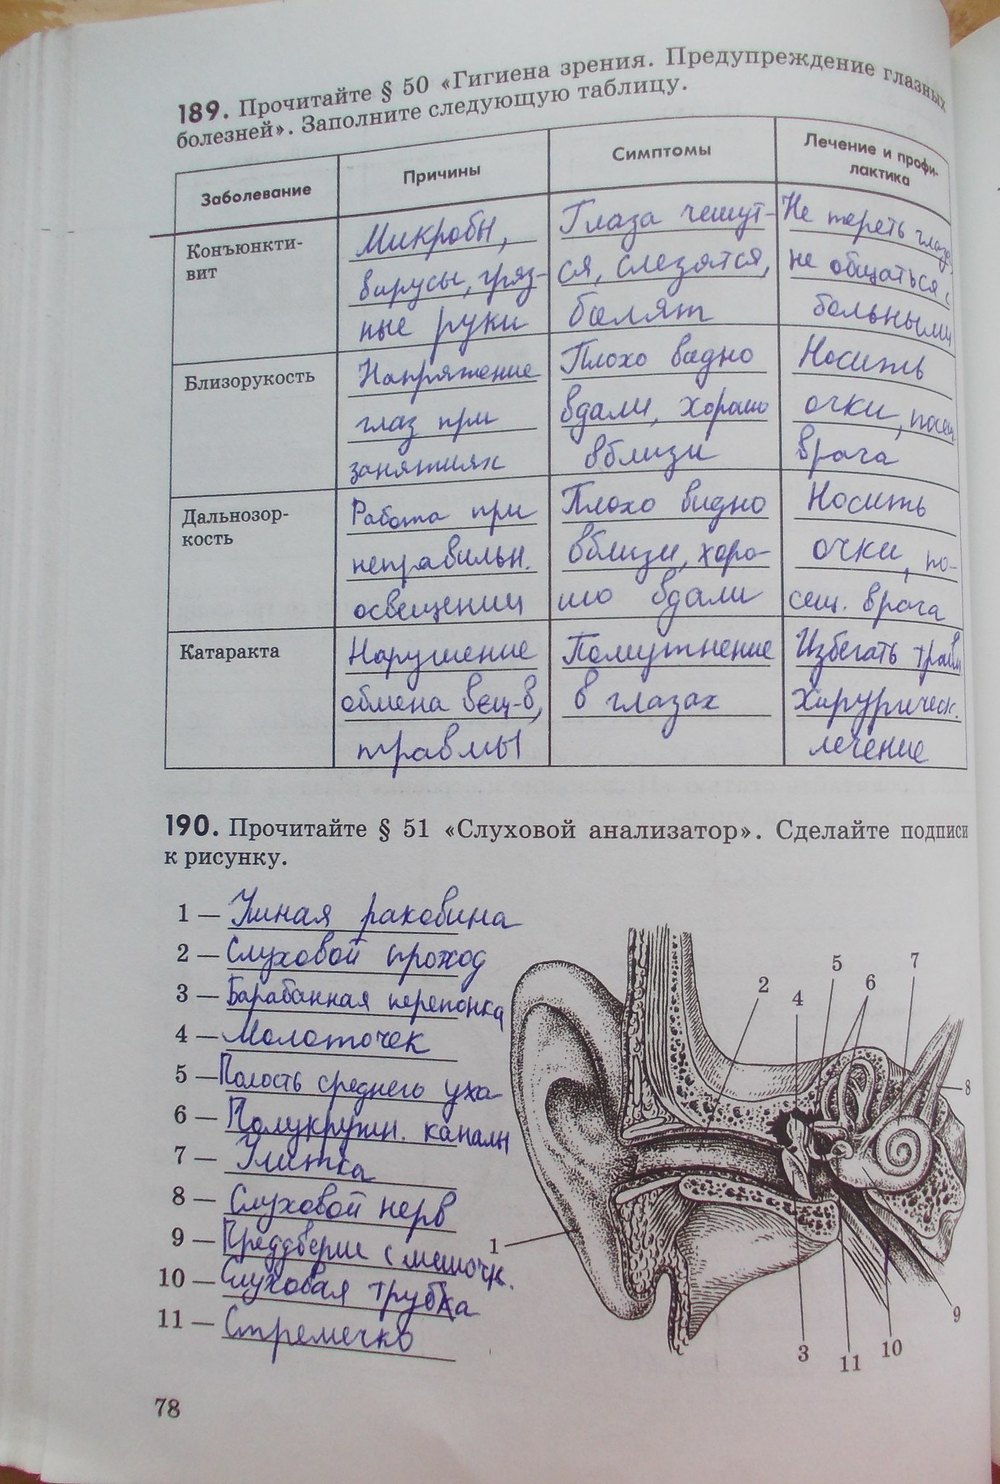 189. Прочитайте § 50 «Гигиена зрения. Предупреждение глазных
болезней». Заполните следующую таблицу.
Заболевание Причины Симптомы Лечение и профи-
лактика
Конъюнкти-
вит
Микробы,
вирусы, гряз-
ные руки
Глаза чешут-
ся, слезятся,
болят
Не тереть глаза,
не общаться с
больными
Близорукость
Напряжение
глаз при
занятиях
Плохо видно
вдали, хорошо
вблизи
Носить
очки, посещ
врача
Дальнозор-
кость
Работа при
неправильн.
освещении
Плохо видно
вблизи, хоро-
шо вдали
Носить
очки, по-
сещ. врача
Катаракта
Нарушение
обмена вещ-в,
травмы
Помутнение
в глазах
Избегать травм
Хирургическ.
лечение
190. Прочитайте § 51 «Слуховой анализатор». Сделайте подписи
к рисунку.
1 — Ушная раковина
2 — Слуховой проход
3 — Барабанная перепонка
4 — Молоточек
5 — Полость среднего уха
6 — Полукружн. каналы
7 — Улитка
8 — Слуховой нерв
9 — Преддверие с мешочк.
10 — Слуховая трубка
11 — Стремечко
5
7
2
4
6
8
1
9
3
11
10
78